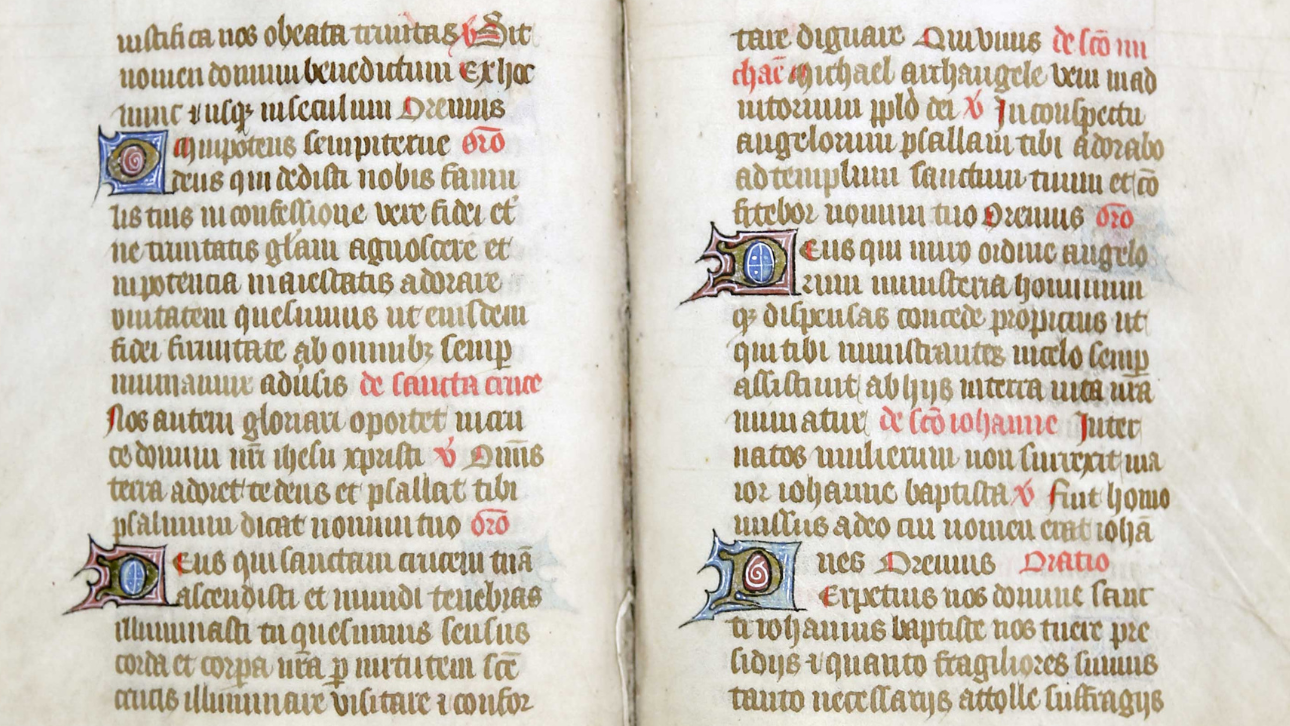 iustifica nos o beata trinitas v̉ Sit
nomen domini benedictum Ex hoc
nunc ⁊ usqꝫ in seculum Oremus
Omnipotens sempiterne oro̅
deus qui dedisti nobis famu
lis tuis in confessione vere fidei et
ne trinitatis glaꝫ agnoscere et
in potencia maiestatis adorare
vnitatem quesumus ut eiusdem
fidei firmitate ab omnibꝫ semp̲
muniamur aduersis de sancta cruce
Nos autem gloriari oportet in cru
ce domini nr̄i ihesu xpristi v̉ Om̄is
terra adoret te deus et psallat tibi
psalmum dicat nomini tuo oro̅
Deus qui sanctam crucem tuā
ascendisti et mundi tenebras
illuminasti tu quesumus sensus
corda et corpa nr̄a ꝑ uirtutem scē
crucis illuminare visitare ⁊ confor
tare dignare Qui viuis de sc̄o mi
chaē Michael archangele veni in ad
iutorium pp̄lo dei v̉ In conspectu
angelorum psallam tibi adorabo
ad templum sanctum tuum et cō
fitebor nomini tuo Oremus oro̅
Deus qui miro ordine angelo
rum ministeria hominum
qꝫ dispensas concede propicius ut
qui tibi ministrantes in celo semp̲
assistunt ab hijs in terra uita nr̄a
muniatur de sc̄o iohanne Inter
natos mulierum non surrexit ma
ior iohanne baptista v̉ Fuit homo
missus a deo cui nomen erat iohā
nes Oremus Oratio
Perpetuis nos domine sanc
ti iohannis baptiste nos tuere pre
sidijs ⁊ quanto fragiliores sumus
tanto necessarijs attolle suffragijs